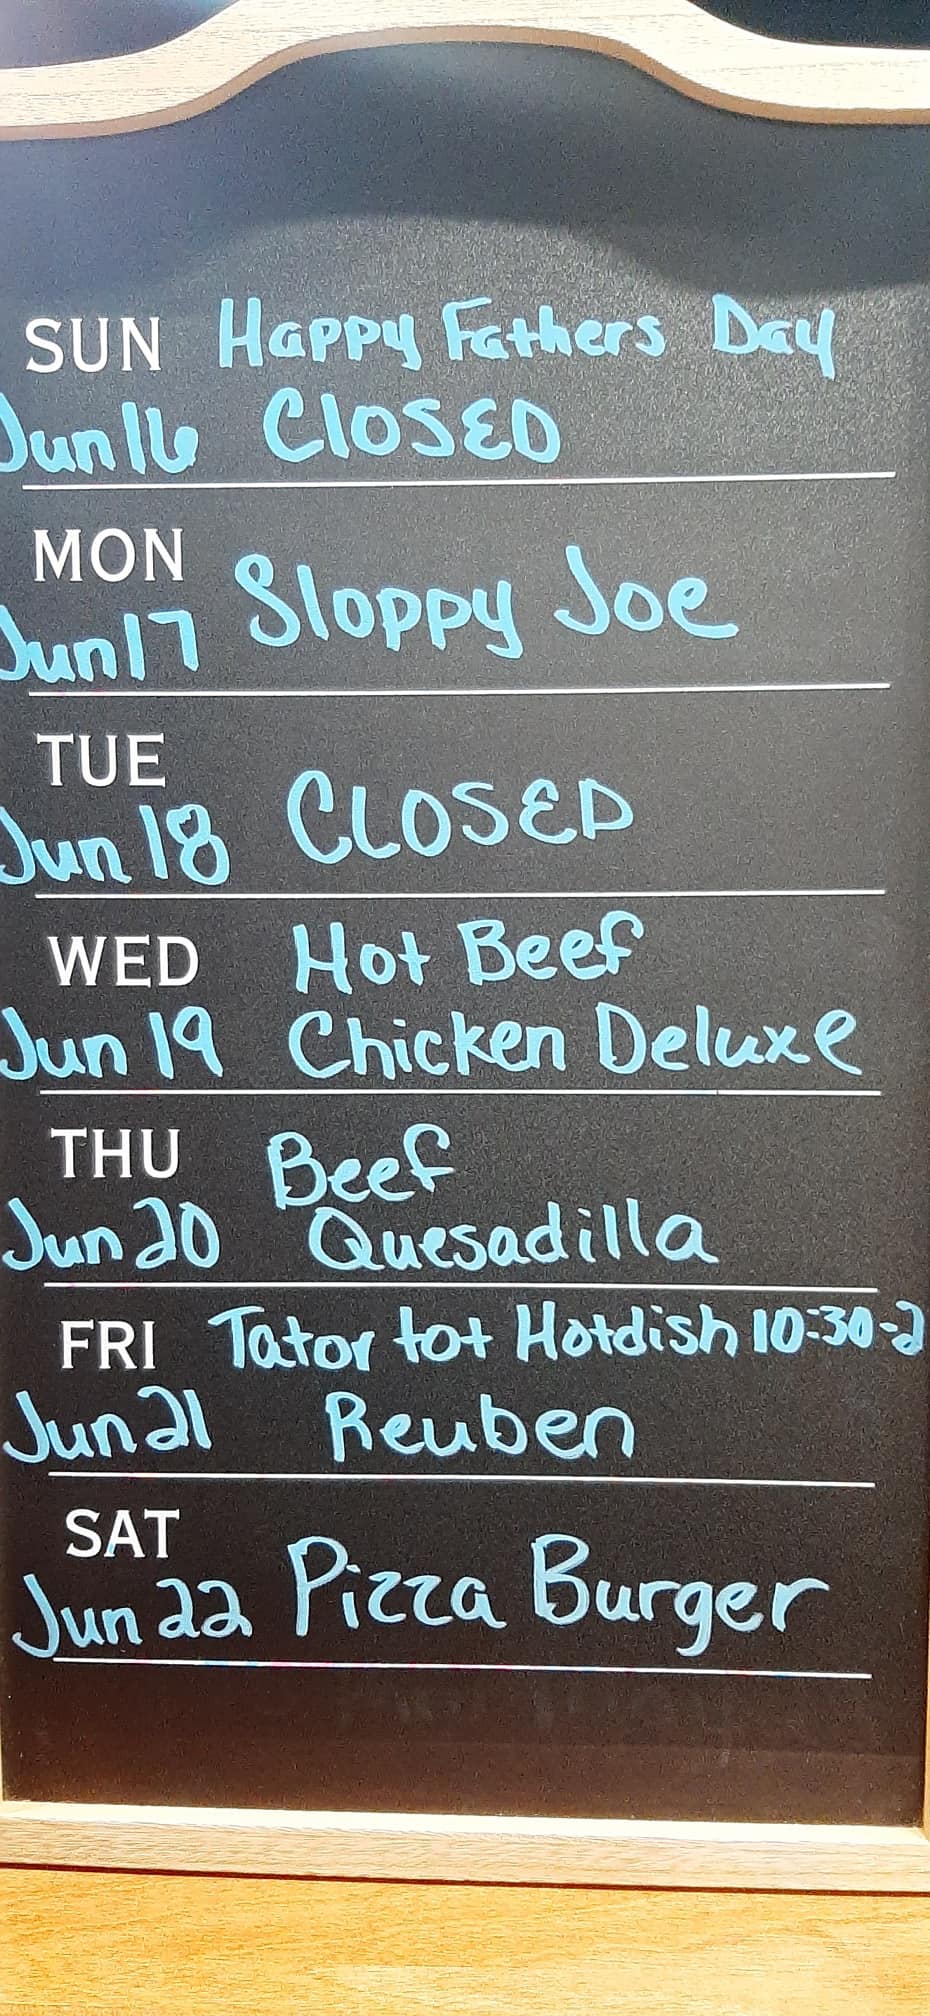 SUN Happy Fathers Day
Jun 16 CLOSED
MON Sloppy Joe
Jun 17
TUE
Jun 18 CLOSED
WED Hot Beef
Jun 19 Chicken Deluxe
THU Beef
Jun 20 Quesadilla
FRI Tator tot Hotdish 10:30-2
Jun 21 Reuben
SAT
Jun 22 Pizza Burger